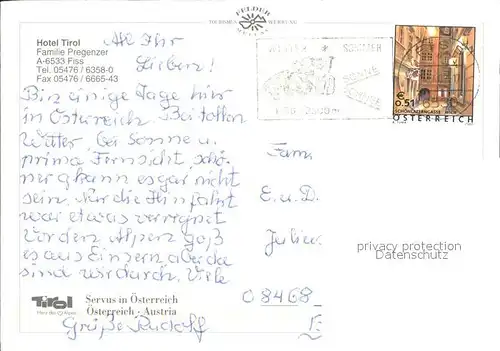 FELDER
TOURISMUS WERBUNG
Hotel Tirol
Familie Pregenzer
A-6533 Fiss
Tel. 05476 / 6358-0
Fax 05476 / 6665-43
All Ihr
Lieben!
Bin einige Tage hier
in Österreich. Bei tollem
Wetter bei Sonne u.
prima Fernsicht, schö-
ner kann es gar nicht
sein. Nur die Hinfahrt
war etwas verregnet
Vor den Alpen goß
es aus Eimern aber da
sind wir durch. Viele
Grüße Rudolf
SOMMER
SONNE
€ 0.51
ÖSTERREICH
Fam.
E. u. D.
08468
privacy protection
Datenschutz
Tirol
Servus in Österreich
Österreich - Austria